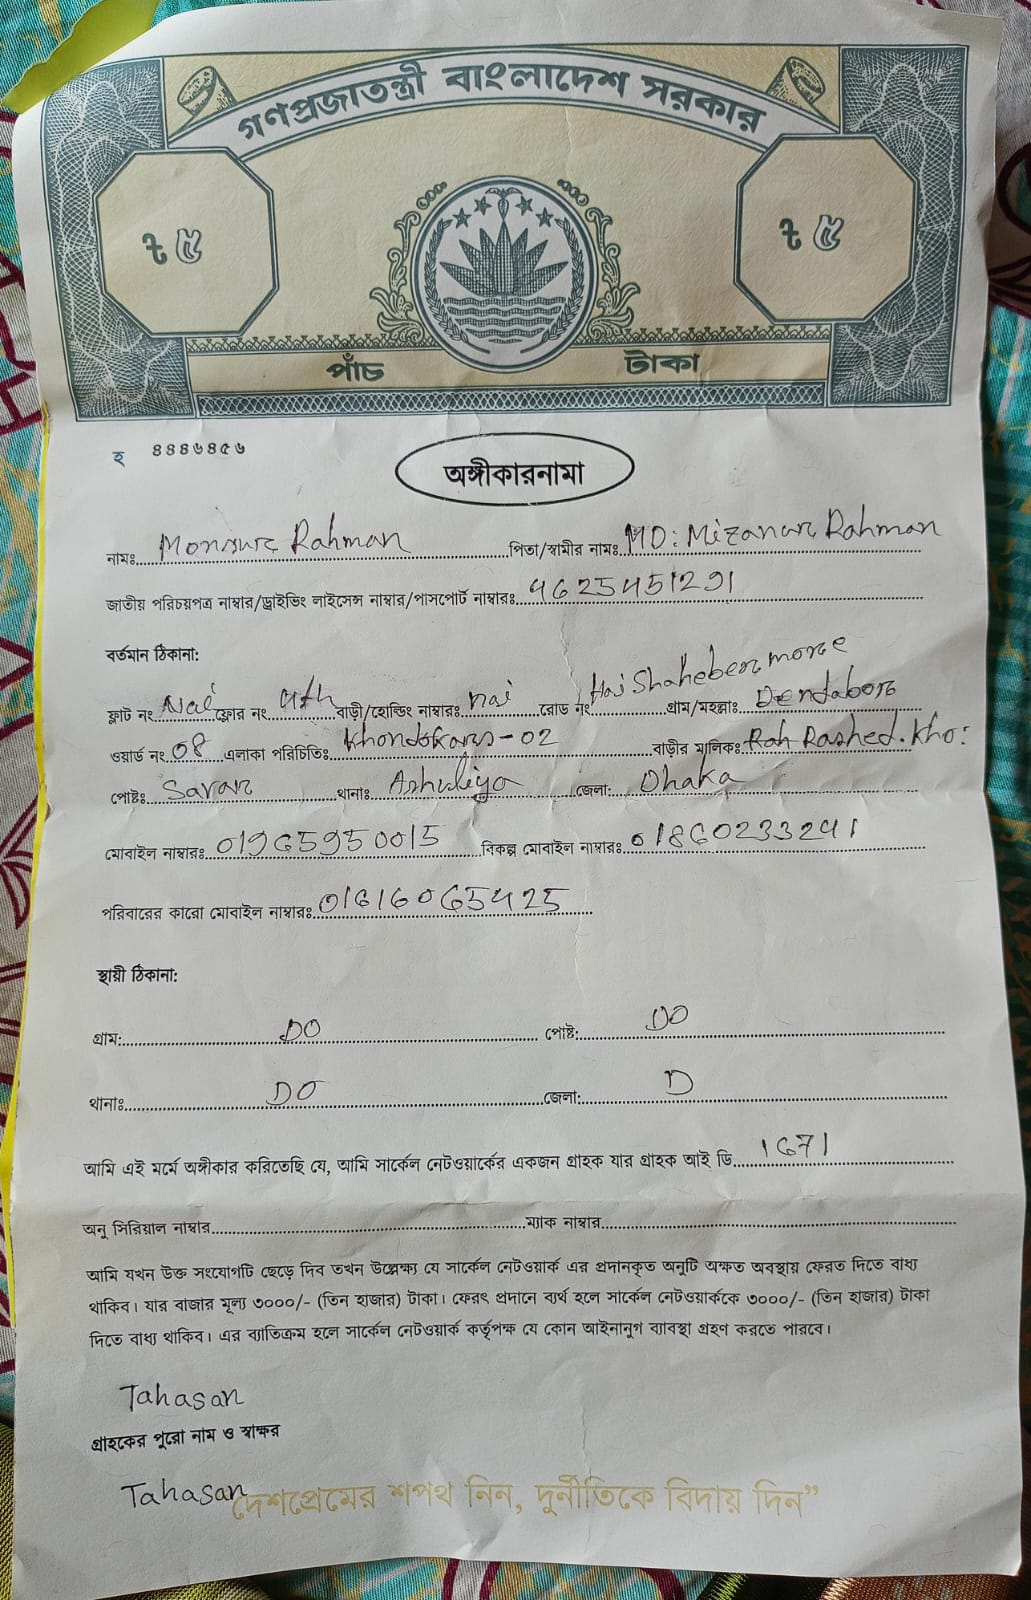 গণপ্রজাতন্ত্রী বাংলাদেশ সরকার
৳ ৫ ৳ ৫
পাঁচ টাকা
হ ৪৪৪৬৪৫৬
অঙ্গীকারনামা
নামঃ Monsur Rahman পিতা/স্বামীর নামঃ MD: Mizanur Rahman
জাতীয় পরিচয়পত্র নাম্বার/ড্রাইভিং লাইসেন্স নাম্বার/পাসপোর্ট নাম্বারঃ 4625451291
বর্তমান ঠিকানা:
ফ্লাট নং Nai ফ্লোর নং 4th বাড়ী/হোল্ডিং নাম্বারঃ nai রোড নং Haj Shaheber more গ্রাম/মহল্লাঃ Dendabor
ওয়ার্ড নং 08 এলাকা পরিচিতিঃ Khondokar - 02 বাড়ীর মালিকঃ Rashed. Kho:
পোষ্টঃ Savar থানাঃ Ashuliya জেলা: Dhaka
মোবাইল নাম্বারঃ 01965950015 বিকল্প মোবাইল নাম্বারঃ 01860233241
পরিবারের কারো মোবাইল নাম্বারঃ 01616065425
স্থায়ী ঠিকানা:
গ্রাম: DO পোষ্ট: DO
থানাঃ DO জেলা: D
আমি এই মর্মে অঙ্গীকার করিতেছি যে, আমি সার্কেল নেটওয়ার্কের একজন গ্রাহক যার গ্রাহক আই ডি 1671
অনু সিরিয়াল নাম্বার ম্যাক নাম্বার
আমি যখন উক্ত সংযোগটি ছেড়ে দিব তখন উল্লেক্ষ্য যে সার্কেল নেটওয়ার্ক এর প্রদানকৃত অনুটি অক্ষত অবস্থায় ফেরত দিতে বাধ্য
থাকিব। যার বাজার মূল্য ৩০০০/- (তিন হাজার) টাকা। ফেরৎ প্রদানে ব্যর্থ হলে সার্কেল নেটওয়ার্ককে ৩০০০/- (তিন হাজার) টাকা
দিতে বাধ্য থাকিব। এর ব্যাতিক্রম হলে সার্কেল নেটওয়ার্ক কর্তৃপক্ষ যে কোন আইনানুগ ব্যাবস্থা গ্রহণ করতে পারবে।
Tahasan
গ্রাহকের পুরো নাম ও স্বাক্ষর
Tahasan
দেশপ্রেমের শপথ নিন, দুর্নীতিকে বিদায় দিন”